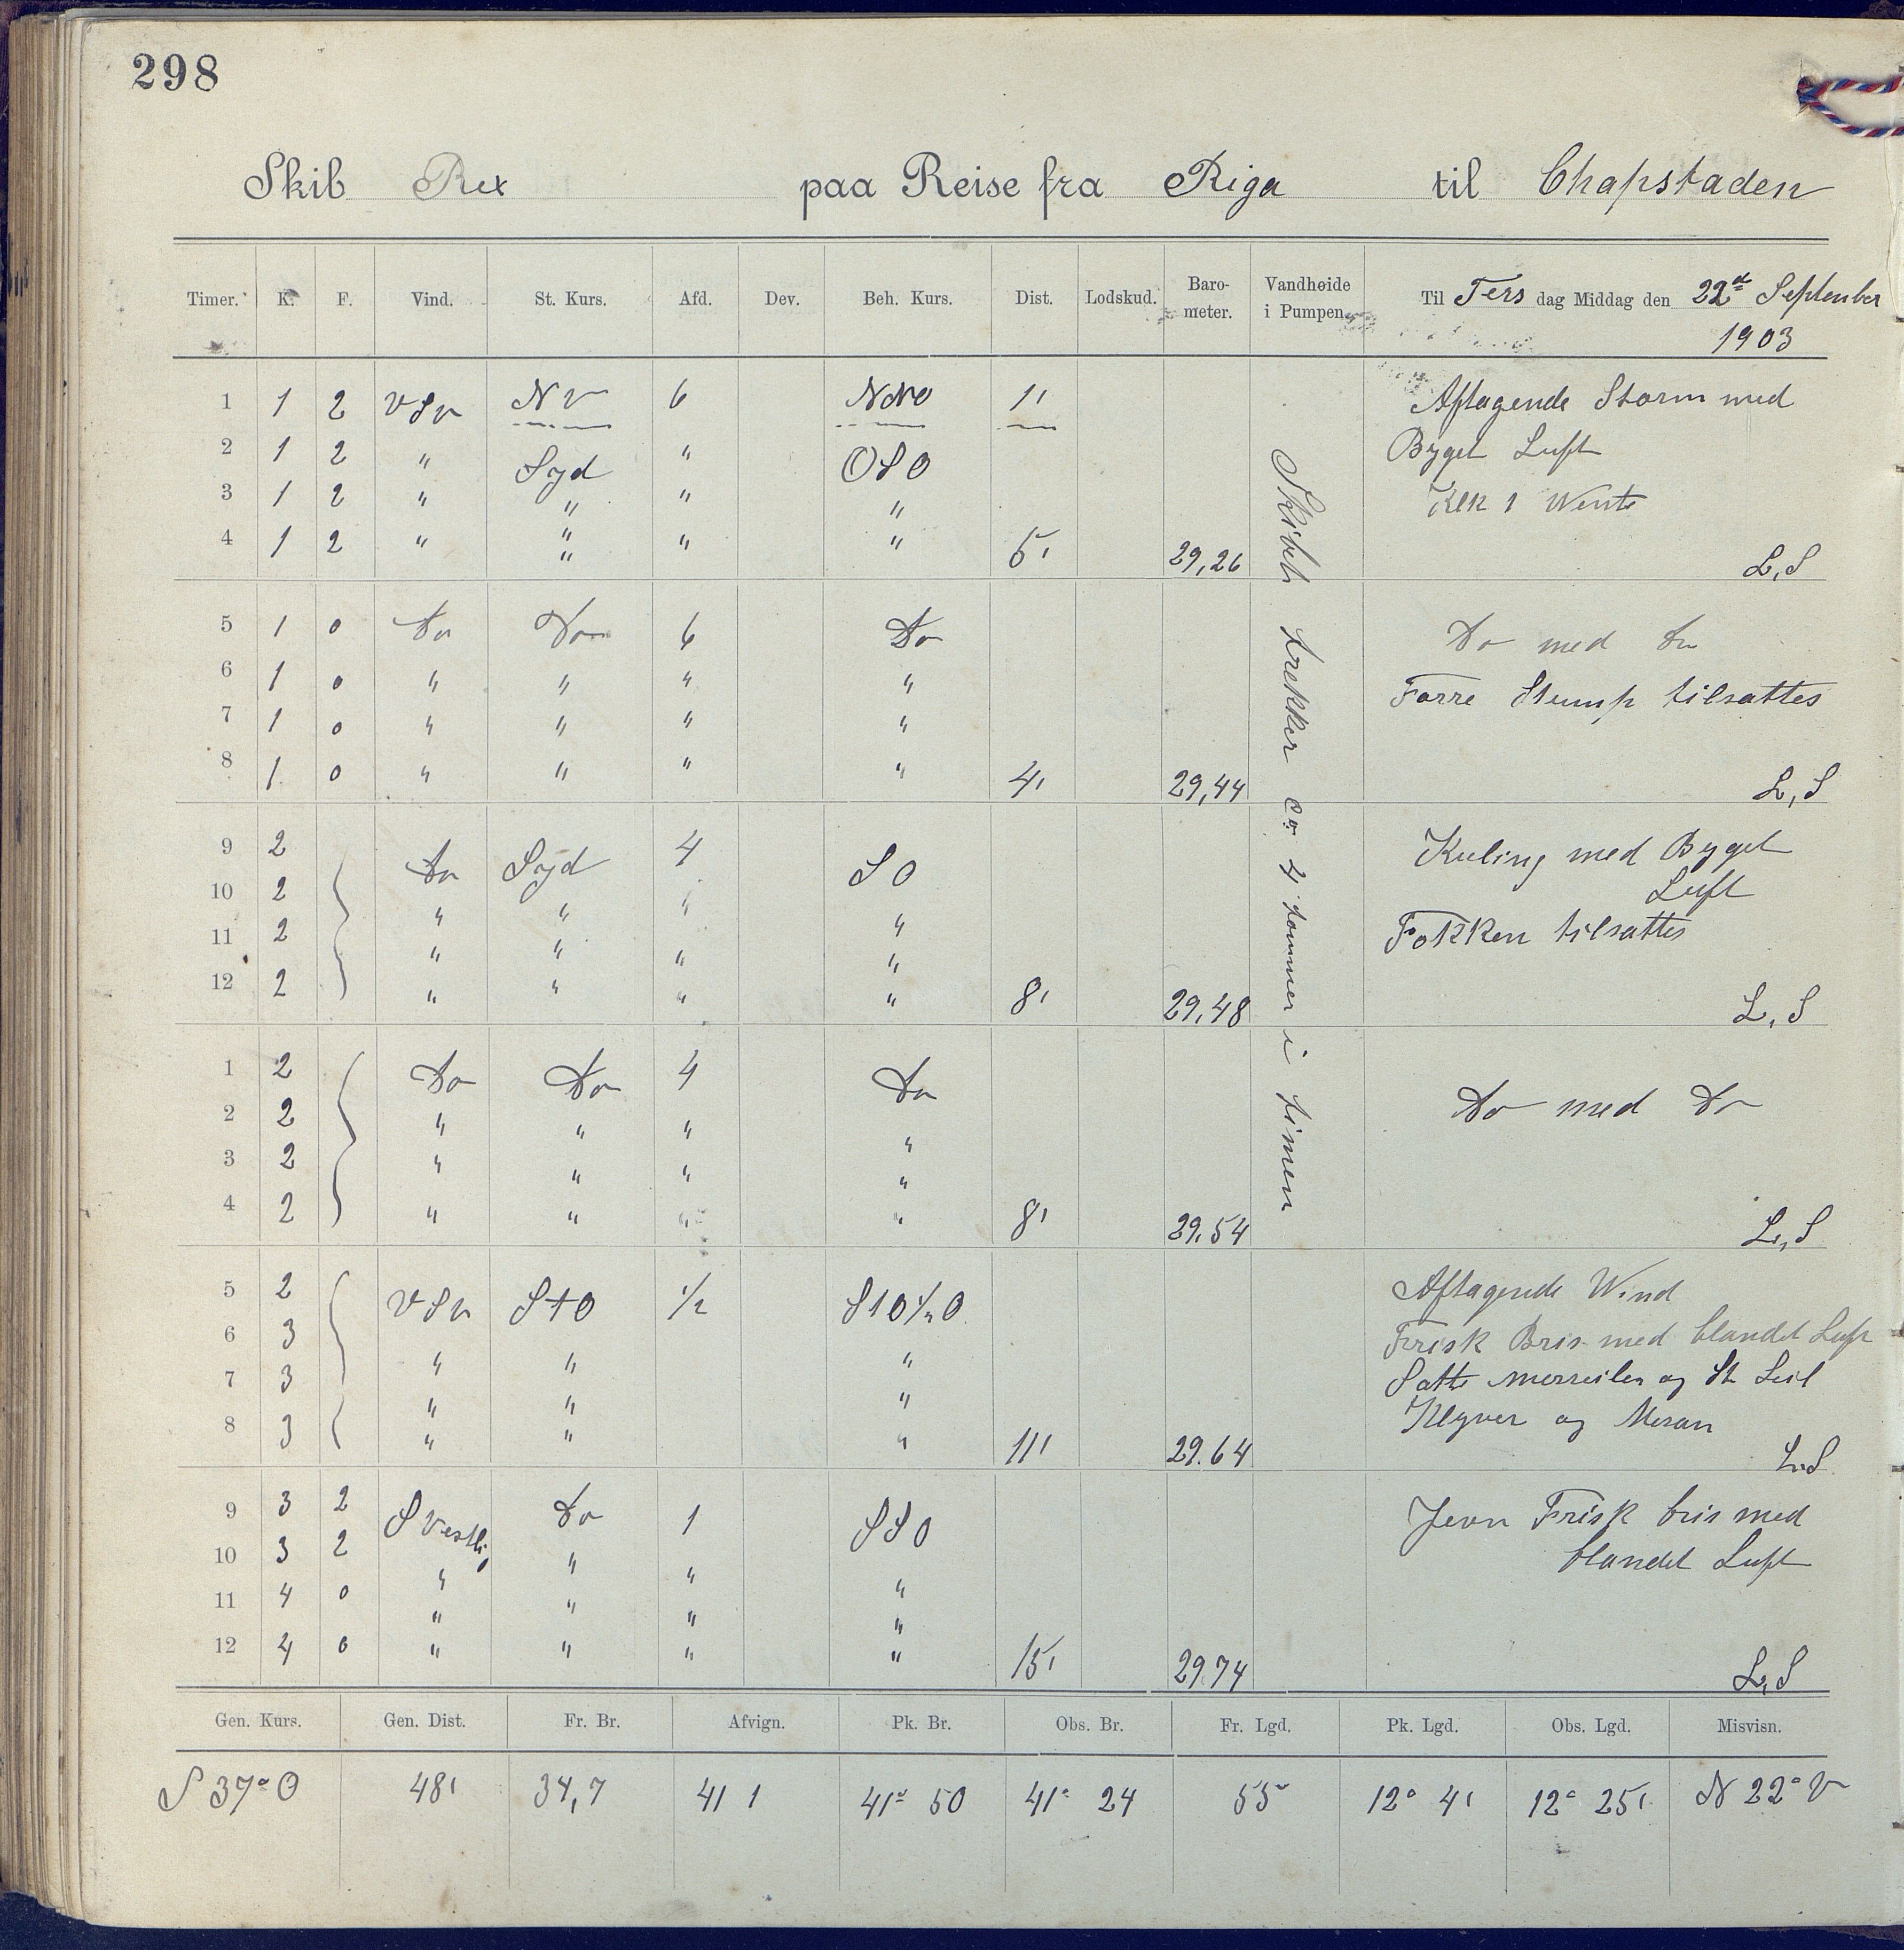 298
Skib Rex paa Reise fra Riga til Chapstaden
Timer. K. F. Vind. St. Kurs. Afd. Dev. Beh. Kurs. Dist. Lodskud. Barometer. Vandheide i Pumpen. Til Ters dag Middag den 22d September
1903
1 1 2 VSv NV 6 NNO 1' Aftagende Storm med
2 1 2 " Syd " OSO Byget Luft
3 1 2 " " " " Klk 1 Wente
4 1 2 " " " " 5' 29,26 L,S
5 1 0 Do Do 6 Do Do med Do
6 1 0 " " " " Forre Stump tilsattes
7 1 0 " " " "
8 1 0 " " " " 4' 29,44 L,S
9 2 Do Syd 4 SO Kuling med Byget
10 2 " " " " Luft
11 2 " " " " Fokken tilsattes
12 2 " " " " 8' 29,48 L,S
1 2 Do Do 4 Do
2 2 " " " " Do med Do
3 2 " " " "
4 2 " " " " 8' 29.54 L,S
Skibet trekker Ca 4 tommer i timen
5 2 VSv StO 1/2 StO1/2O Aftagende Wind
6 3 " " " Frisk Bris med blandet Luft
7 3 " " " Satte Merseilen og St Seil
8 3 " " " 11' 29.64 Klyver og Mesan
L.S
9 3 2 SVestlig Do 1 SSO Jevn Frisk bris med
10 3 2 " " " " blandet Luft
11 4 0 " " " "
12 4 0 " " " " 15' 29.74 L,S
Gen. Kurs. Gen. Dist. Fr. Br. Afvign. Pk. Br. Obs. Br. Fr. Lgd. Pk. Lgd. Obs. Lgd. Misvisn.
S 37° O 48' 34,7 41 1 41° 50 41° 24 55 12° 4' 12° 25' N 22° V